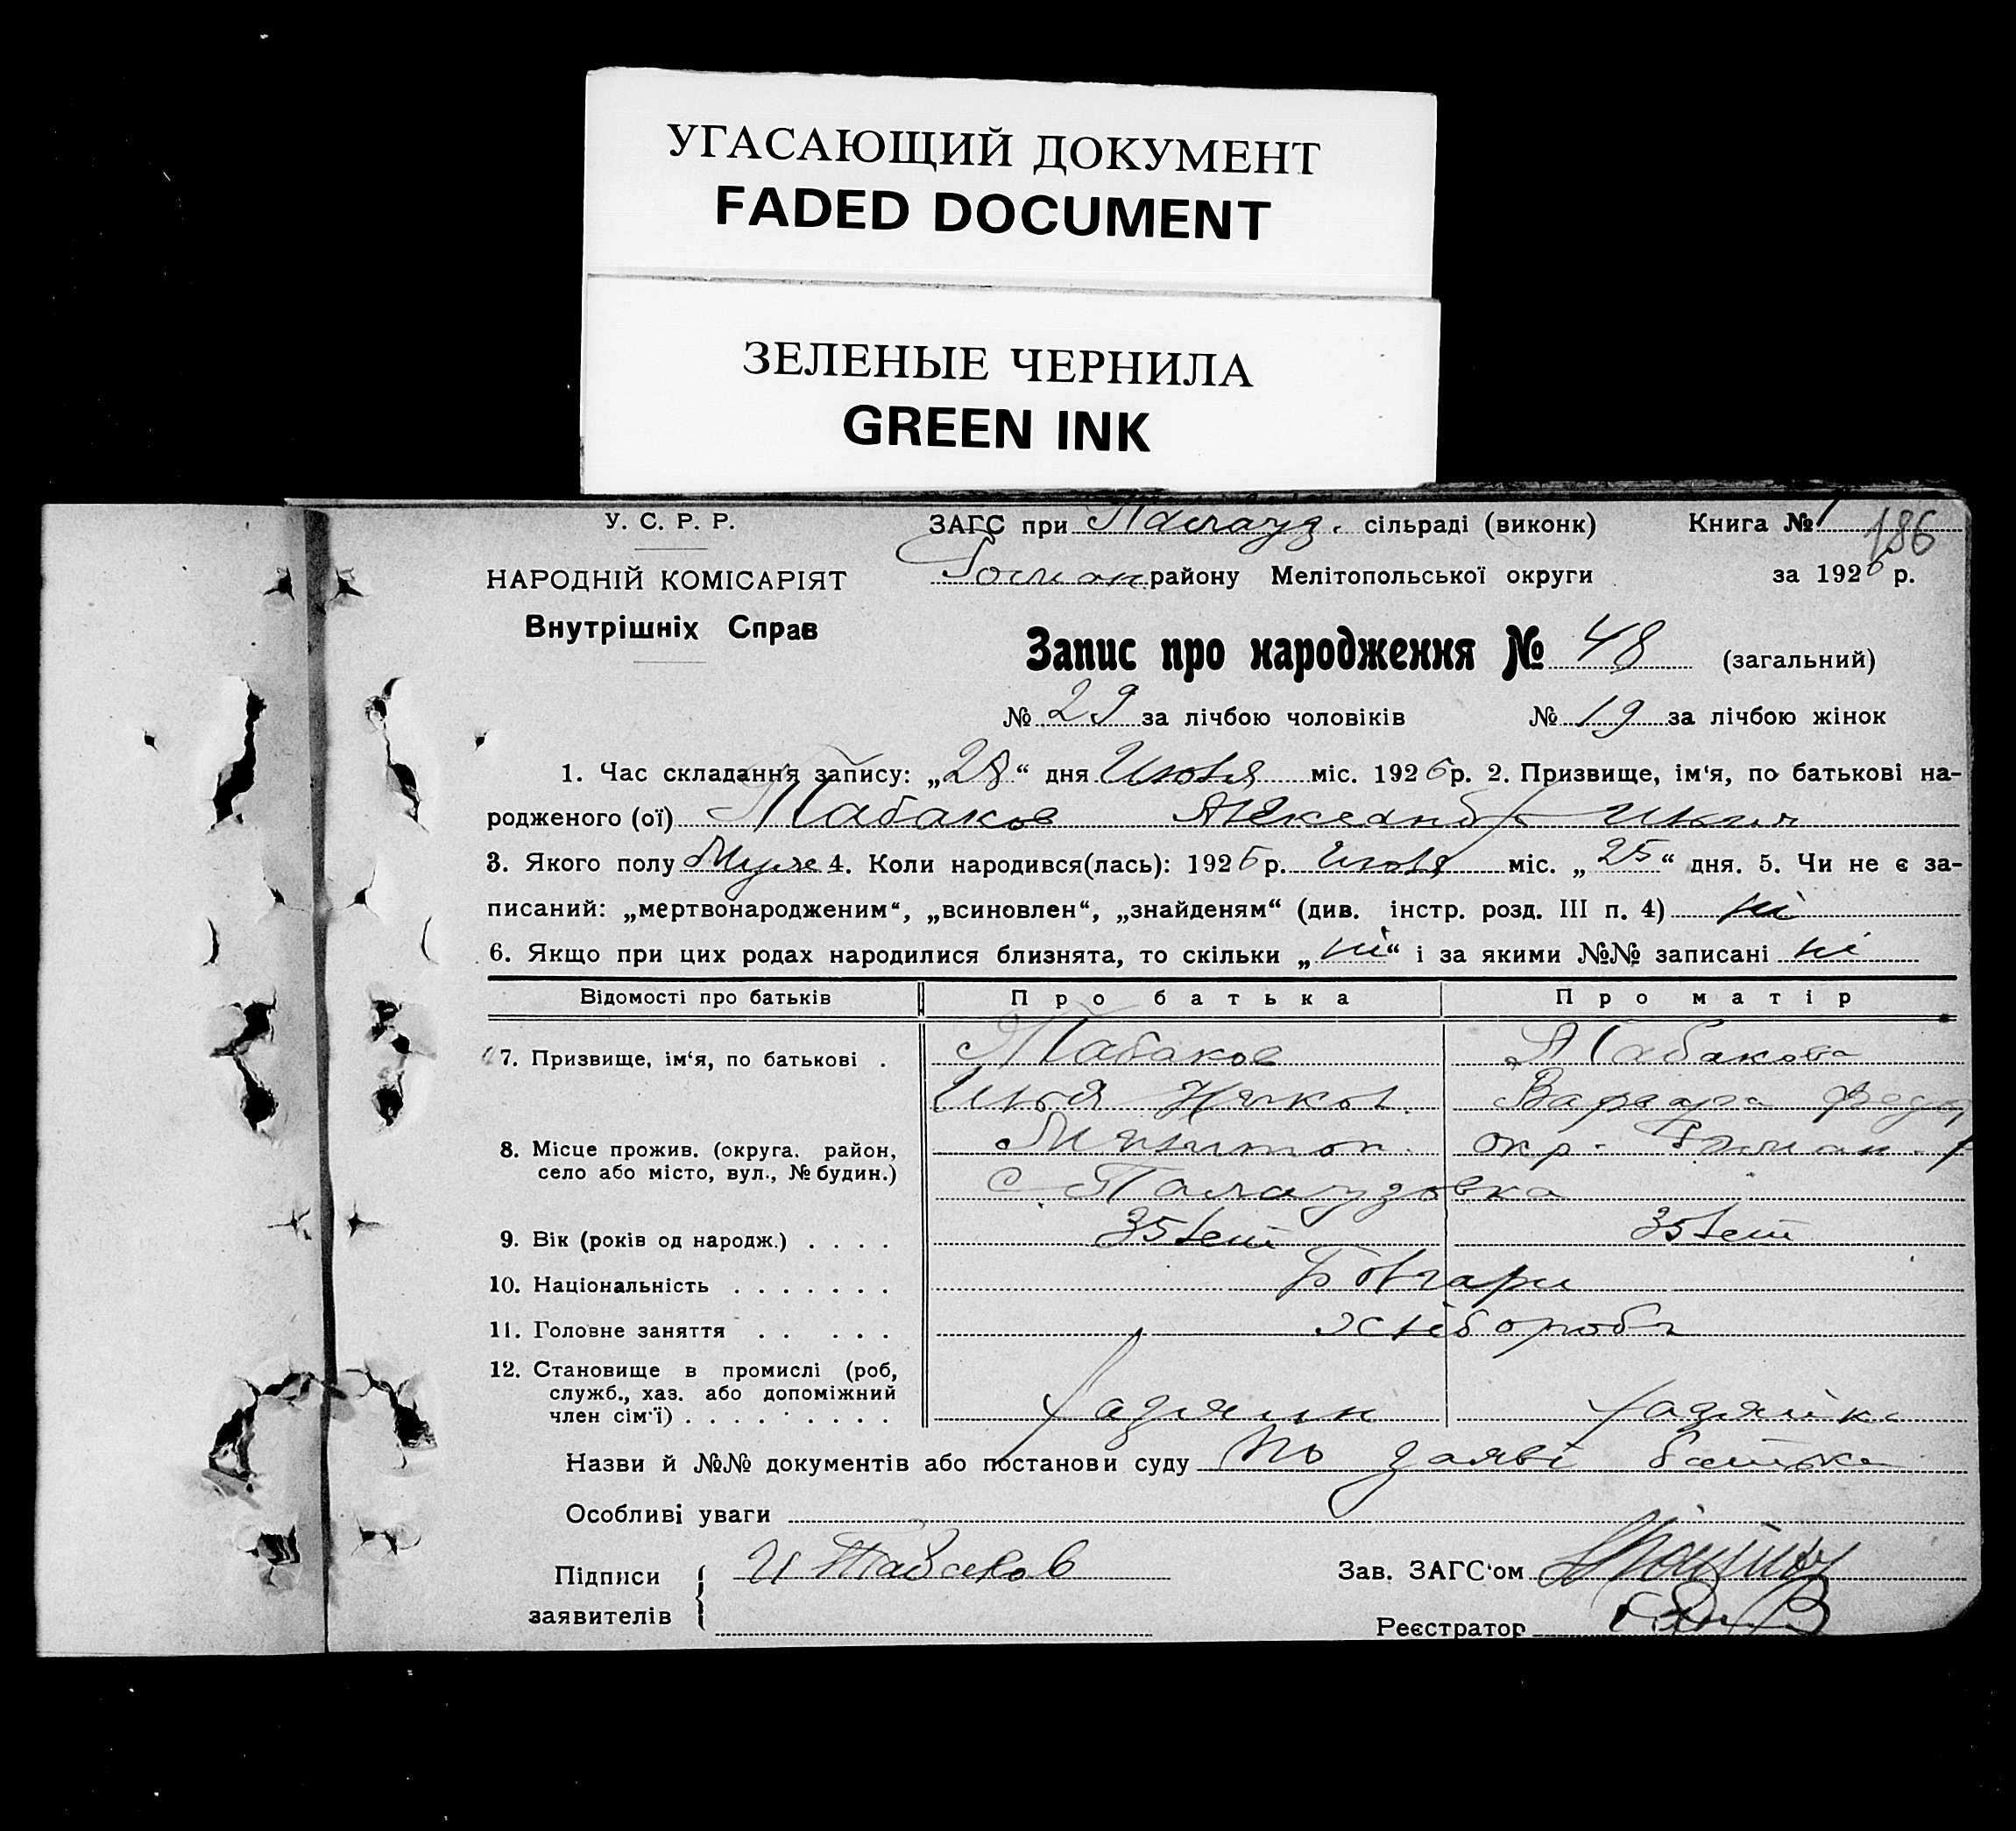 УГАСАЮЩИЙ ДОКУМЕНТ
FADED DOCUMENT
ЗЕЛЕНЫЕ ЧЕРНИЛА
GREEN INK
У. С. Р. Р.
НАРОДНІЙ КОМІСАРІЯТ
Внутрішніх Справ
ЗАГС при Палауз. сільраді (виконк) Книга № 1
186
району Мелітопольської округи за 1926 р.
Запис про народження № 48 (загальний)
№ 29 за лічбою чоловіків № 19 за лічбою жінок
1. Час складання запису: „28“ дня Июля міс. 1926 р. 2. Призвище, ім‘я, по батькові на-
родженого (ої) Табаков Александр Илич
3. Якого полу Муж 4. Коли народився(лась): 1926 р. Июля міс. „25“ дня. 5. Чи не є за-
писаний: „мертвонародженим“, „всиновлен“, „знайденям“ (див. інстр. розд. III п. 4) ні
6. Якщо при цих родах народилися близнята, то скільки „ні“ і за якими №№ записані ні
Відомості про батьків Про батька Про матір
7. Призвище, ім‘я, по батькові . Табаков Табакова
Илья Никол. Варвара Федор
8. Місце прожив. (округа. район, Мелитоп. окр.
село або місто, вул., № будин.) с. Палаузовка
9. Вік (років од народж.) . . . . 35 лет 35 лет
10. Національність . . . . . . . Болгари
11. Головне заняття . . . . . хлібороби
12. Становище в промислі (роб,
служб., хаз. або допоміжний
член сім‘ї) . . . . . . . . . хазяин хазяйка
Назви й №№ документів або постанови суду по заяві батька
Особливі уваги
Підписи И Табаков Зав. ЗАГС‘ом
заявителів Реєстратор